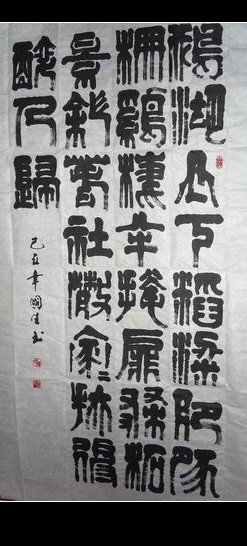 鵝湖山下稻粱肥豚
柵鷄棲半掩扉桑柘
景斜春社散家〻扶得
醉人歸
己丑國书